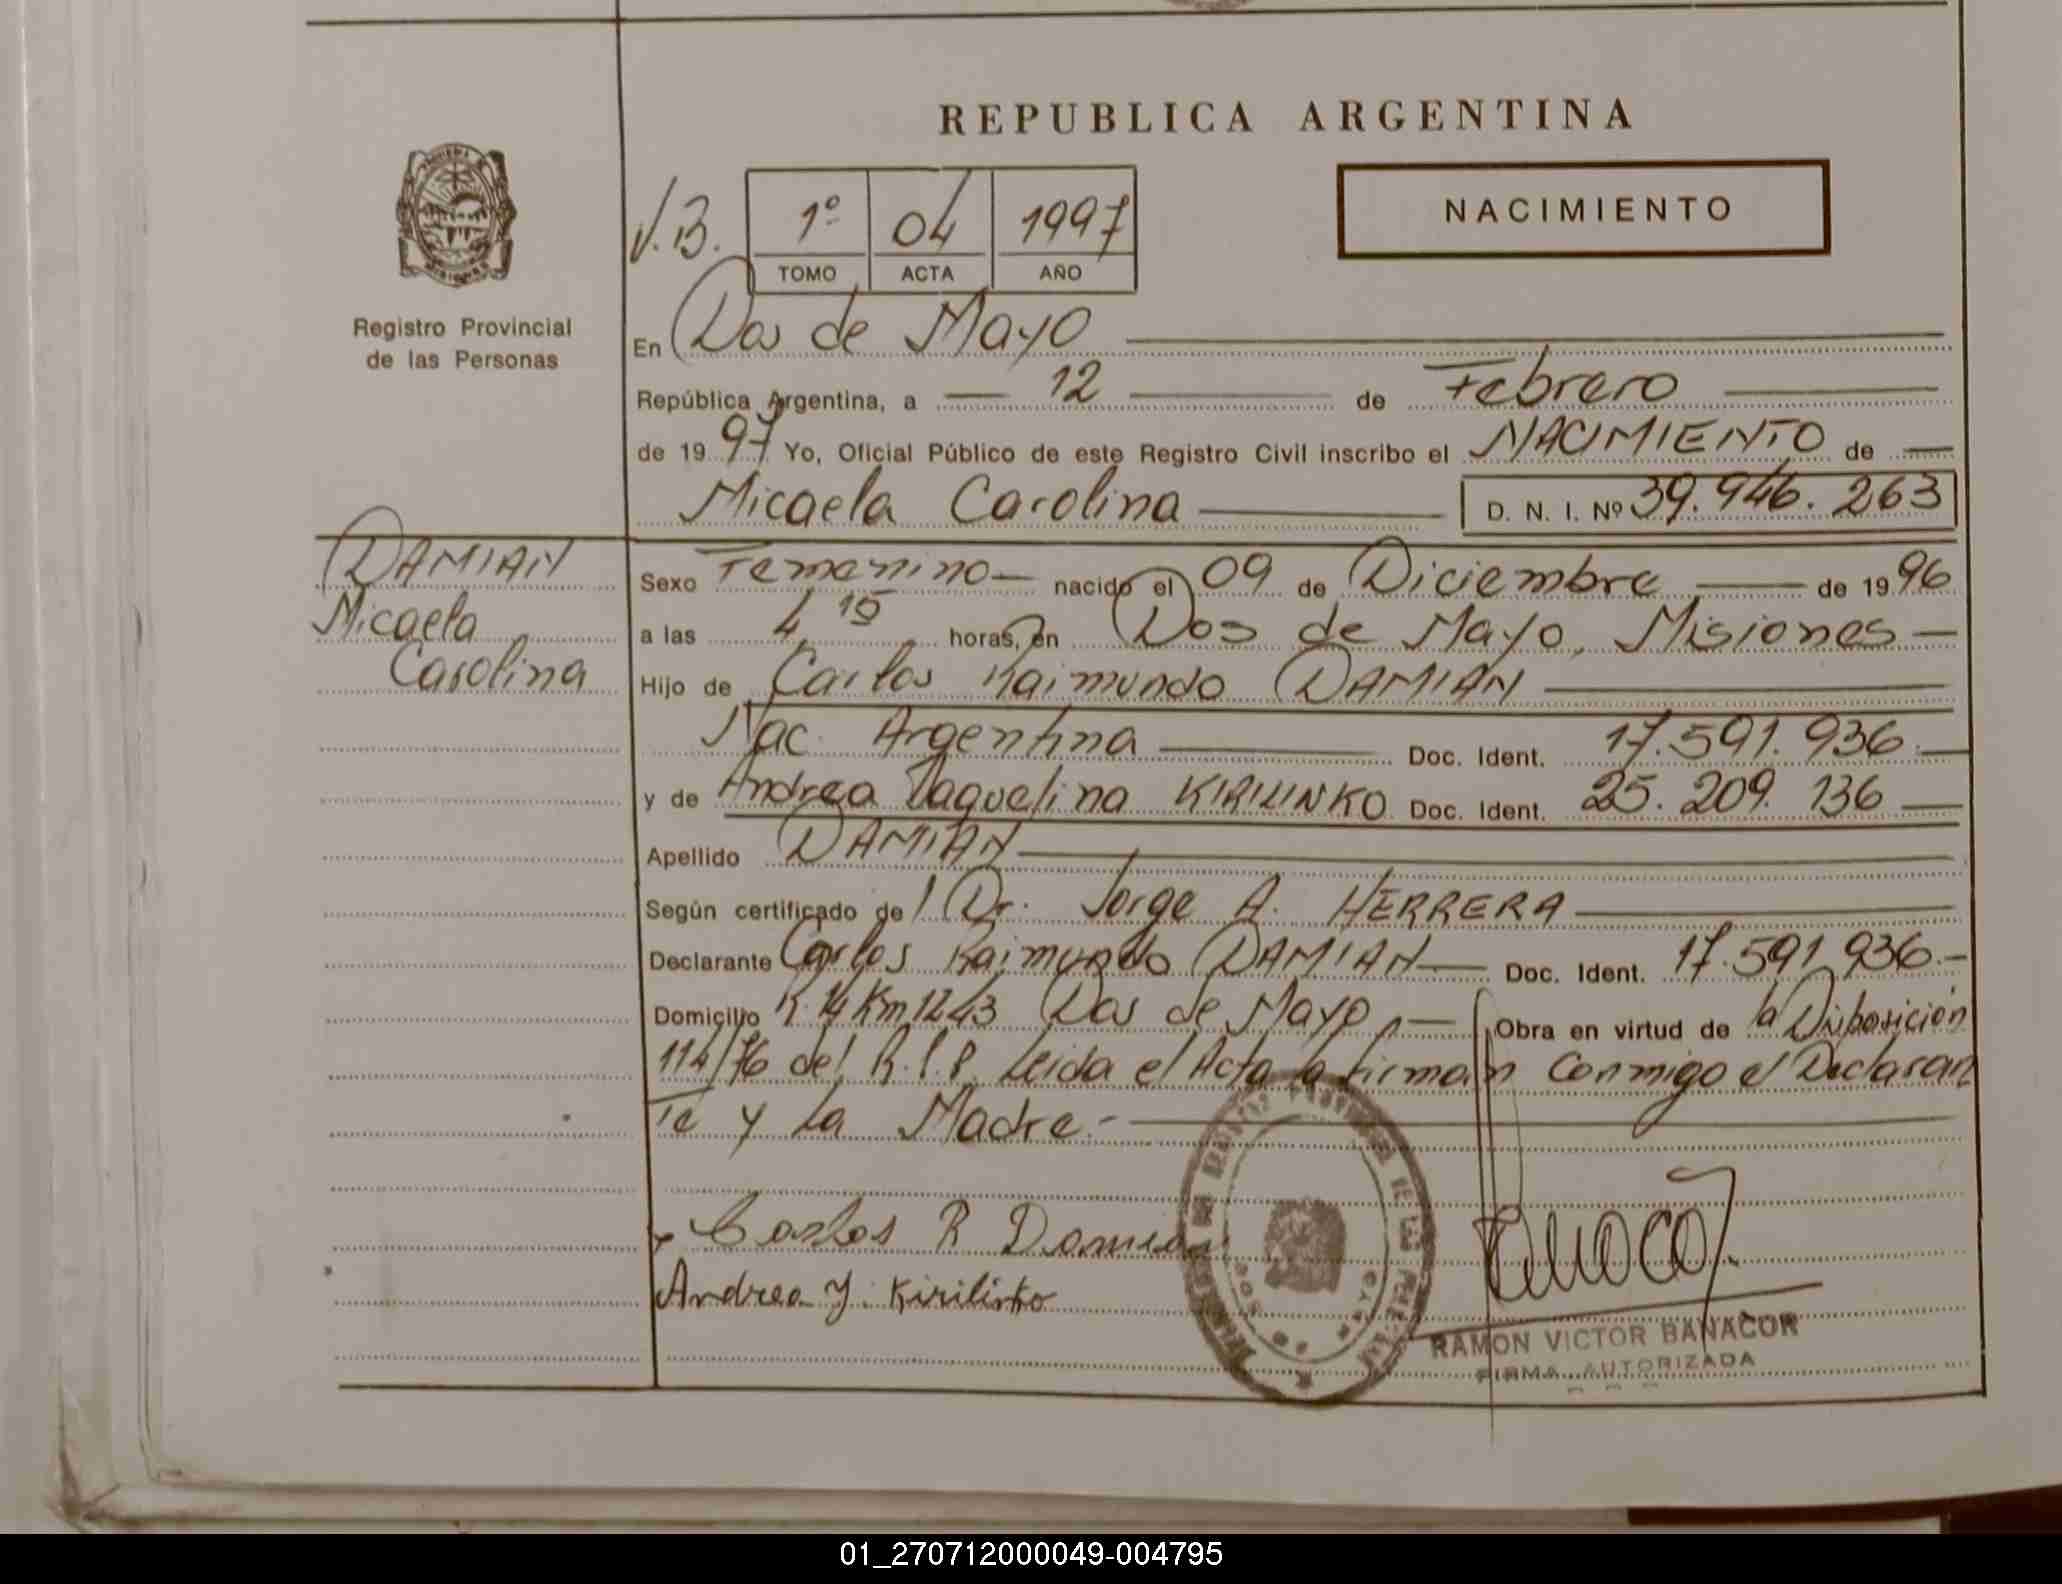 REPUBLICA ARGENTINA
V.B.
1º 04 1997
TOMO ACTA AÑO
NACIMIENTO
Registro Provincial
de las Personas
En Dos de Mayo
República Argentina, a 12 de Febrero
de 1997 Yo, Oficial Público de este Registro Civil inscribo el NACIMIENTO de
Micaela Carolina D. N. I. Nº 39.946.263
DAMIAN
Micaela
Carolina
Sexo Femenino nacido el 09 de Diciembre de 1996
a las 4,15 horas, en Dos de Mayo, Misiones
Hijo de Carlos Raimundo DAMIAN
Nac. Argentina Doc. Ident. 17.591.936
y de Andrea Yaquelina KIRILINKO Doc. Ident. 25.209.136
Apellido DAMIAN
Según certificado del Dr. Jorge A. HERRERA
Declarante Carlos Raimundo DAMIAN Doc. Ident. 17.591.936.-
Domicilio R. 14 Km 1243 Dos de Mayo Obra en virtud de la Disposición
114/76 del R.P.P. Leida el Acta la firman Conmigo el Declaran
te y la Madre.-
Carlos R Damian
Andrea Y. Kirilinko
RAMON VICTOR BANACOR
FIRMA AUTORIZADA
01_270712000049-004795